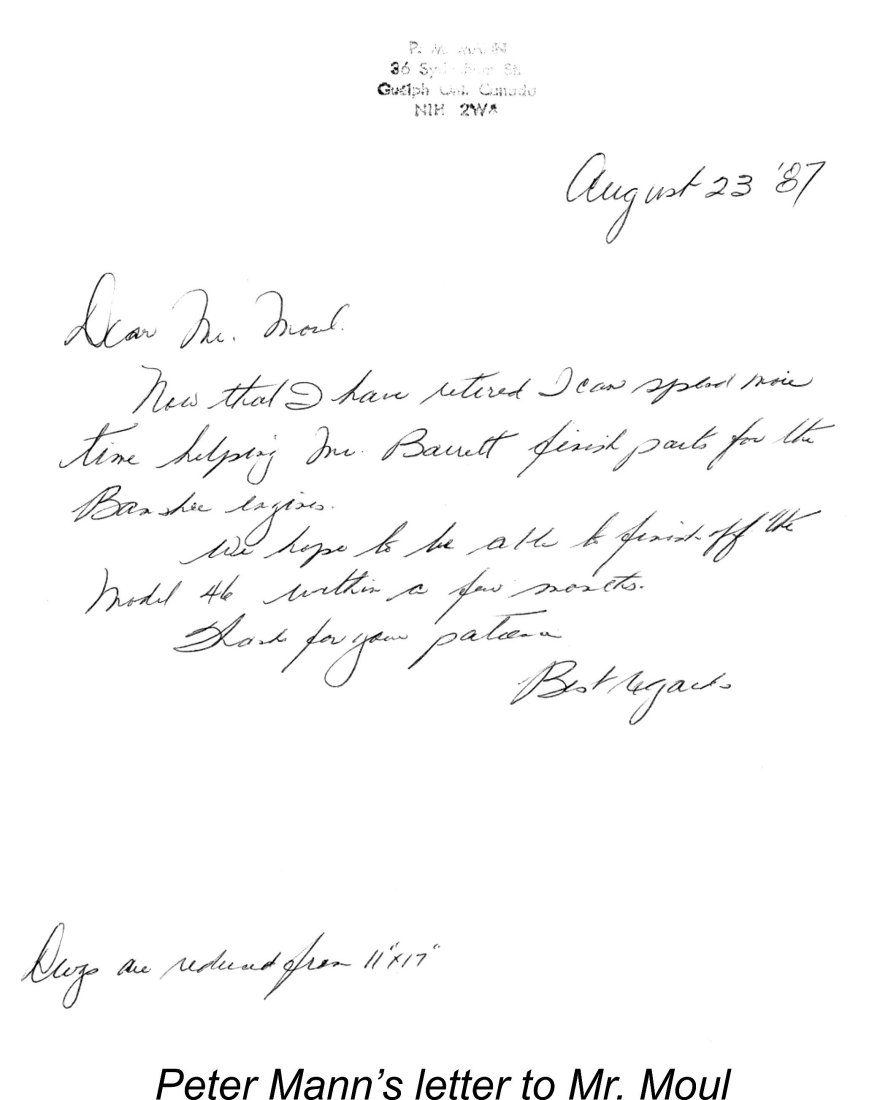 P. M. MANN
36 St.
Guelph Ont. Canada
N1H 2WA
August 23 '87
Dear Mr. Moul.
Now that I have retired I can spend more
time helping Mr. Barrett finish parts for the
Banshee engines.
We hope to be able to finish off the
Model 46 within a few months.
Thank for your patience
Best regards
Dwgs are reduced from 11"x17"
Peter Mann's letter to Mr. Moul